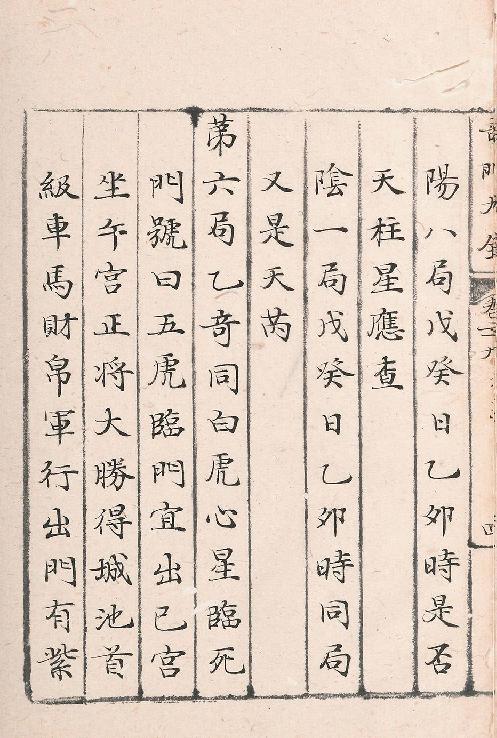 陽八局戊癸日乙卯時是否
天柱星應查
陰一局戊癸日乙卯時同局
又是天芮
苐六局乙奇同白虎心星臨死
門號曰五虎臨門宜出巳宮
坐午宮正将大勝得城池首
級車馬財帛軍行出門有紫